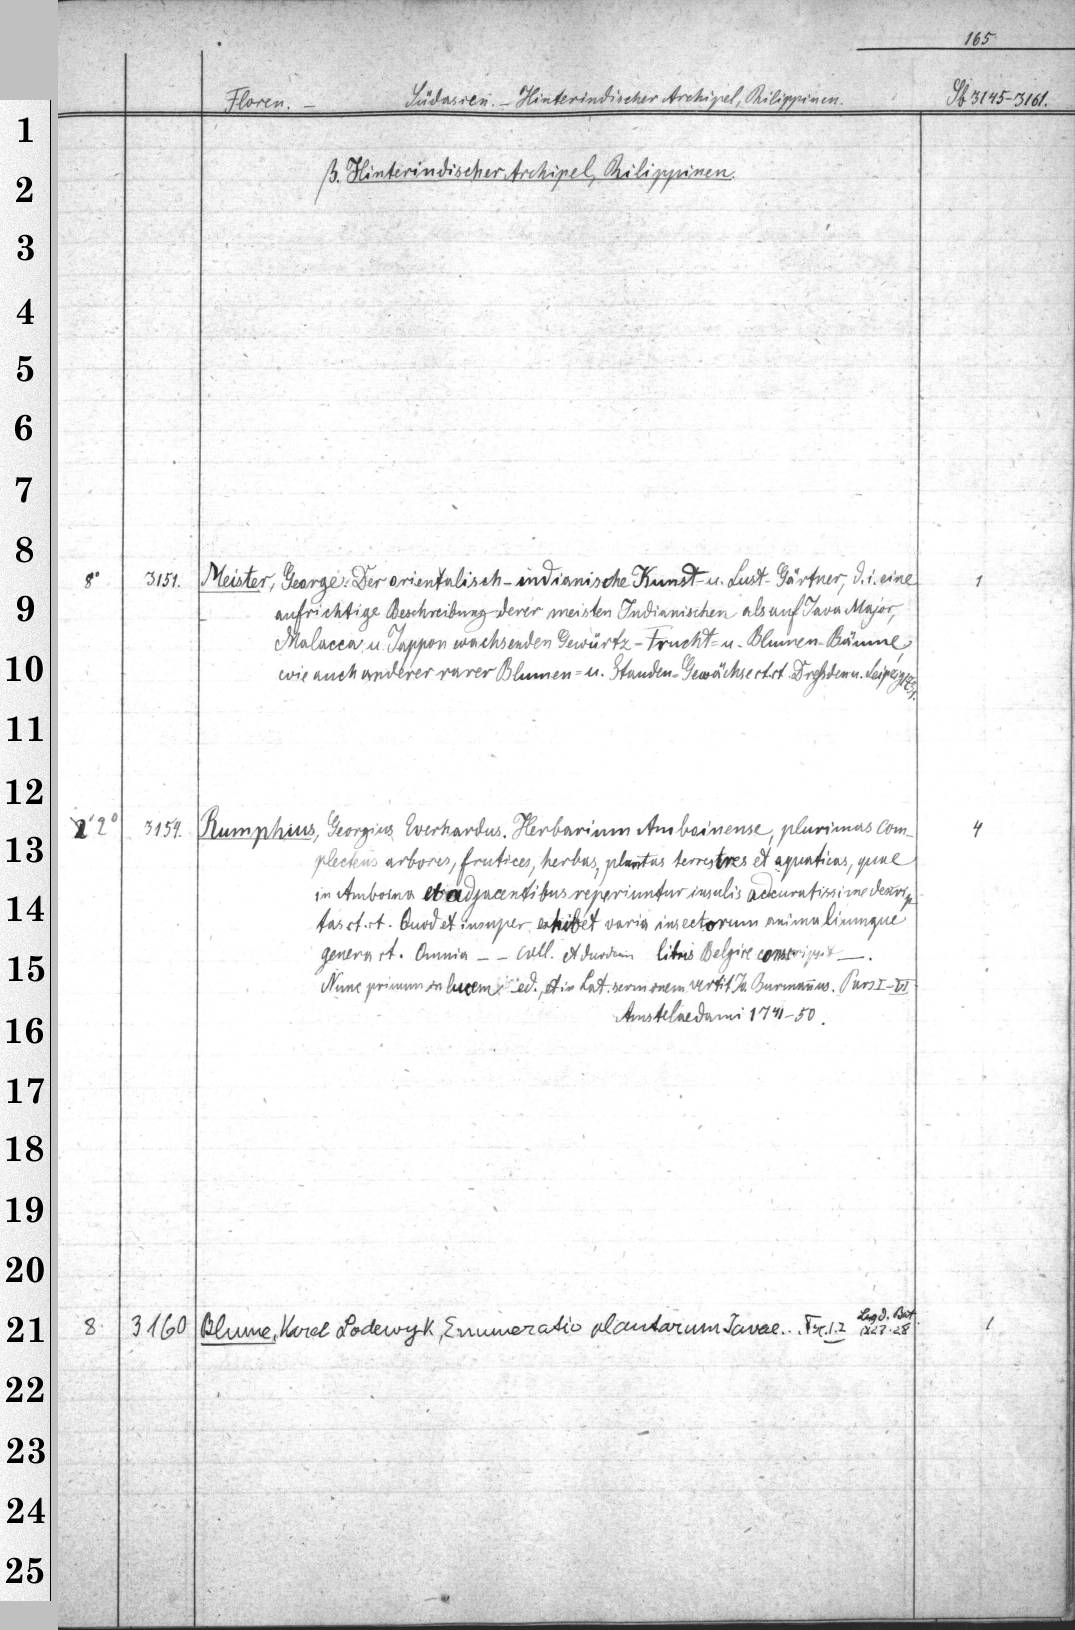 165
Floren. – Südasien. – Hinterindischer Archipel, Philippinen. Sb 3145–3161.
β. Hinterindischer Archipel, Philippinen.
8° 3151. Meister, George: Der orientalisch-indianische Kunst- u. Lust-Gärtner, d. i. eine 1
aufrichtige Beschreibung derer meisten Indianischen als auf Java Major,
Malacca u. Jappon wachsenden Gewürtz- Frucht- u. Blumen-Bäume,
wie auch anderer rarer Blumen- u. Stauden-Gewächse etc. Dreßden u. Leipzig
2° 3159. Rumphius, Georgius Everhardus. Herbarium Amboinense, plurimas com- 4
plectens arbores, frutices, herbas, plantas terrestres et aquaticas, quae
in Amboina et adjacentibus reperiuntur insulis adcuratissime descrip-
tas rt. rt. Quod et insuper exhibet varia insectorum animaliumque
genera rt. Omnia – – coll. et duodecim libris Belgice conscripsit —.
Nunc primum in lucem ed., et in Lat. sermonem vertit Jo. Burmannus. Pars I–VI
Amstelaedami 1741–50.
8 3160 Blume, Karel Lodewyk, Enumeratio plantarum Javae... Fsc. 1.2 Lugd. Bat. 1
1827–28
1
2
3
4
5
6
7
8
9
10
11
12
13
14
15
16
17
18
19
20
21
22
23
24
25